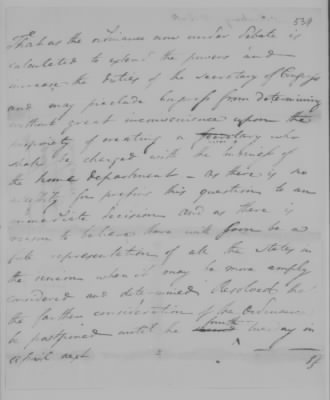 539
That as the ordinance now under debate is
calculated to extend the powers and
increase the duties of the secretary of Congress
and may preclude Congress from determining
without great inconvenience upon the
propriety of creating a secretary who
shall be charged with the business of
the home department - as there is no
necessity for pressing this question to an
immediate decision and as there is
reason to believe there will soon be a
full representation of all the states in
the union when it may be more amply
considered and determined. Resolved that
the farther consideration of the Ordinance
be postponed until the fourth tuesday in
april next